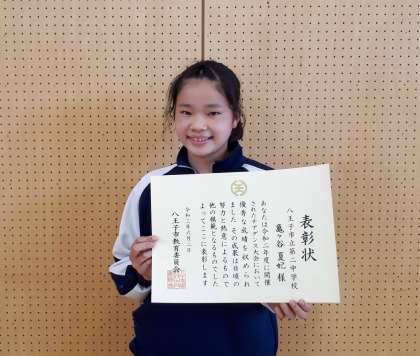 表彰状
八王子市立第二中学校
亀ヶ谷 夏妃 様
あなたは令和二年度に開催
されたチアダンス大会において
優秀な成績を収められ
ました その成果は日頃の
努力と熱意によるもので
他の模範となるものでした
よってここに表彰します
令和三年六月二日
八王子市教育委員会